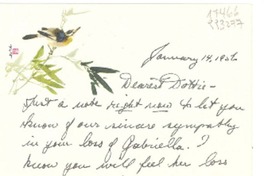 January 14, 19
Dearest Dottie-
Just a note right now to let you
know of our sincere sympathy
in your loss of Gabriella. I
know you will feel her loss